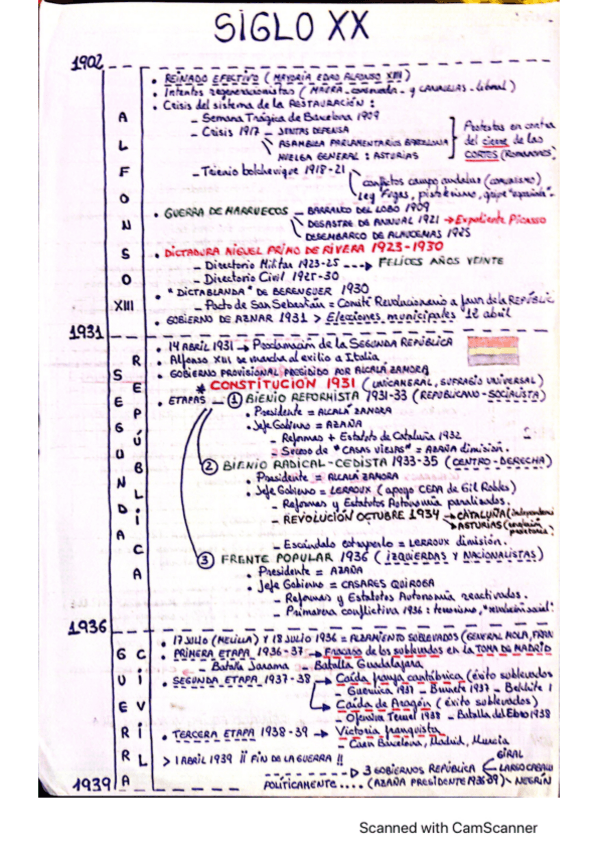 SIGLO XX
1902
• REINADO EFECTIVO (MAYORÍA EDAD ALFONSO XIII)
• Intentos regeneracionistas (MAURA - conservador - y CANALEJAS - liberal)
• Crisis del sistema de la RESTAURACIÓN:
- Semana Trágica de Barcelona 1909
- Crisis 1917 - JUNTAS DEFENSA
ASAMBLEA PARLAMENTARIOS BARCELONA
HUELGA GENERAL: ASTURIAS
Protestas en contra
del cierre de las
CORTES (ROMANONES)
- Trienio bolchevique 1918-21
Conflictos campo andaluz (comunismo)
Ley Fugas, pistolerismo, gripe "española"
• GUERRA DE MARRUECOS - BARRANCO DEL LOBO 1909
DESASTRE DE ANNUAL 1921 → Expediente Picasso
DESEMBARCO DE ALHUCEMAS 1925
• DICTADURA MIGUEL PRIMO DE RIVERA 1923-1930
- Directorio Militar 1923-25 ---> FELICES AÑOS VEINTE
- Directorio Civil 1925-30
• "DICTABLANDA" DE BERENGUER 1930
- Pacto de San Sebastián = Comité Revolucionario a favor de la REPÚBLIC
• GOBIERNO DE AZNAR 1931 > Elecciones municipales 12 abril
ALFONSO XIII
1931
• 14 ABRIL 1931 → Proclamación de la SEGUNDA REPÚBLICA
• Alfonso XIII se marcha al exilio a Italia
• GOBIERNO PROVISIONAL PRESIDIDO POR ALCALÁ ZAMORA
* CONSTITUCIÓN 1931 (UNICAMERAL, SUFRAGIO UNIVERSAL)
• ETAPAS - 1 BIENIO REFORMISTA 1931-33 (REPUBLICANO-SOCIALISTA)
• Presidente = ALCALÁ ZAMORA
• Jefe Gobierno = AZAÑA
- Reformas + Estatuto de Cataluña 1932
- Suceso de "CASAS VIEJAS" = AZAÑA dimisión.
2 BIENIO RADICAL-CEDISTA 1933-35 (CENTRO-DERECHA)
• Presidente = ALCALÁ ZAMORA
• Jefe Gobierno = LERROUX (apoyo CEDA de Gil Robles)
- Reformas y Estatutos Autonomía paralizados.
- REVOLUCIÓN OCTUBRE 1934 → CATALUÑA (independent
ASTURIAS (revolución
- Escándalo estraperlo = LERROUX dimisión.
3 FRENTE POPULAR 1936 (IZQUIERDAS Y NACIONALISTAS)
• Presidente = AZAÑA
• Jefe Gobierno = CASARES QUIROGA
- Reformas y Estatutos Autonomía reactivados.
- Primavera conflictiva 1936: terrorismo, "revolución social".
SEGUNDA
REPÚBLICA
1936
• 17 JULIO (MELILLA) Y 18 JULIO 1936 = ALZAMIENTO SUBLEVADOS (GENERAL MOLA, FRAN
• PRIMERA ETAPA 1936-37 → Fracaso de los sublevados en la TOMA DE MADRID
- Batalla Jarama - Batalla Guadalajara
• SEGUNDA ETAPA 1937-38 → Caída franja cantábrica (éxito sublevados
- Guernica 1937 - Brunete 1937 - Belchite 1
→ Caída de Aragón (éxito sublevados)
- Ofensiva Teruel 1938 - Batalla del Ebro 1938
• TERCERA ETAPA 1938-39 → Victoria franquista
- Caen Barcelona, Madrid, Murcia
> 1 ABRIL 1939 ¡¡ FIN DE LA GUERRA !!
GIRAL
3 GOBIERNOS REPÚBLICA LARGO CABALL
POLÍTICAMENTE .... (AZAÑA PRESIDENTE 1936-39) NEGRÍN
GUERRA
CIVIL
1939
Scanned with CamScanner